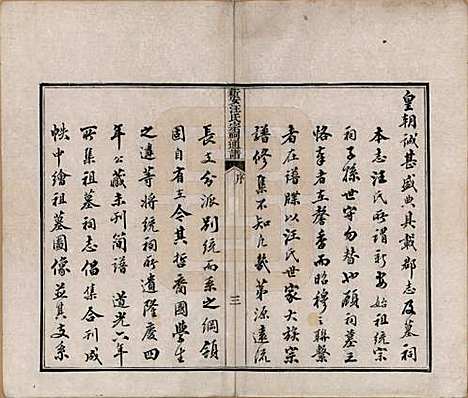 皇朝誠甚盛典具載郡志及墓祠
本志汪氏所謂新安始祖統宗
祠子孫世守勿替也顧祠墓主
恪奉者主馨香而昭穆之聯繫
者在譜牒以汪氏世家大族宗
譜修集不知凡幾第源遠流
新安汪氏宗祠通譜
序
三
長支分派別統而系之綱領
固自有主今其哲裔國學生
之遴等將統祠所遺隆慶四
年公藏未刊簡譜 道光六年
所集祖墓祠志倡集合刊成
帙中繪祖墓圖像並其支系